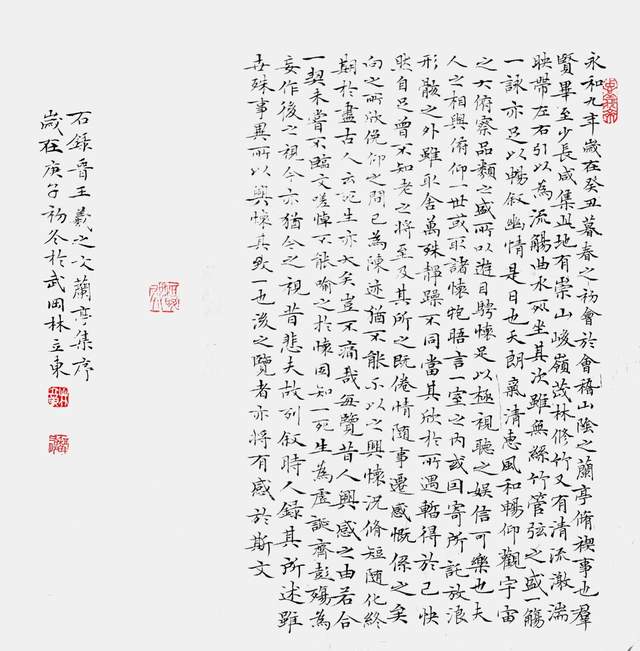 永和九年歲在癸丑暮春之初會於會稽山陰之蘭亭脩禊事也羣
賢畢至少長咸集此地有崇山峻嶺茂林修竹又有清流激湍
映帶左右引以為流觴曲水列坐其次雖無絲竹管弦之盛一觴
一詠亦足以暢敘幽情是日也天朗氣清惠風和暢仰觀宇宙
之大俯察品類之盛所以遊目騁懷足以極視聽之娛信可樂也夫
人之相與俯仰一世或取諸懷抱晤言一室之內或因寄所託放浪
形骸之外雖取舍萬殊靜躁不同當其欣於所遇暫得於己快
然自足曾不知老之將至及其所之既倦情隨事遷感慨係之矣
向之所欣俛仰之間已為陳迹猶不能不以之興懷況脩短隨化終
期於盡古人云死生亦大矣豈不痛哉每覽昔人興感之由若合
一契未嘗不臨文嗟悼不能喻之於懷固知一死生為虛誕齊彭殤為
妄作後之視今亦猶今之視昔悲夫故列敘時人錄其所述雖
世殊事異所以興懷其致一也後之覽者亦將有感於斯文
右錄晉王羲之文蘭亭集序
歲在庚子初冬於武岡林立東